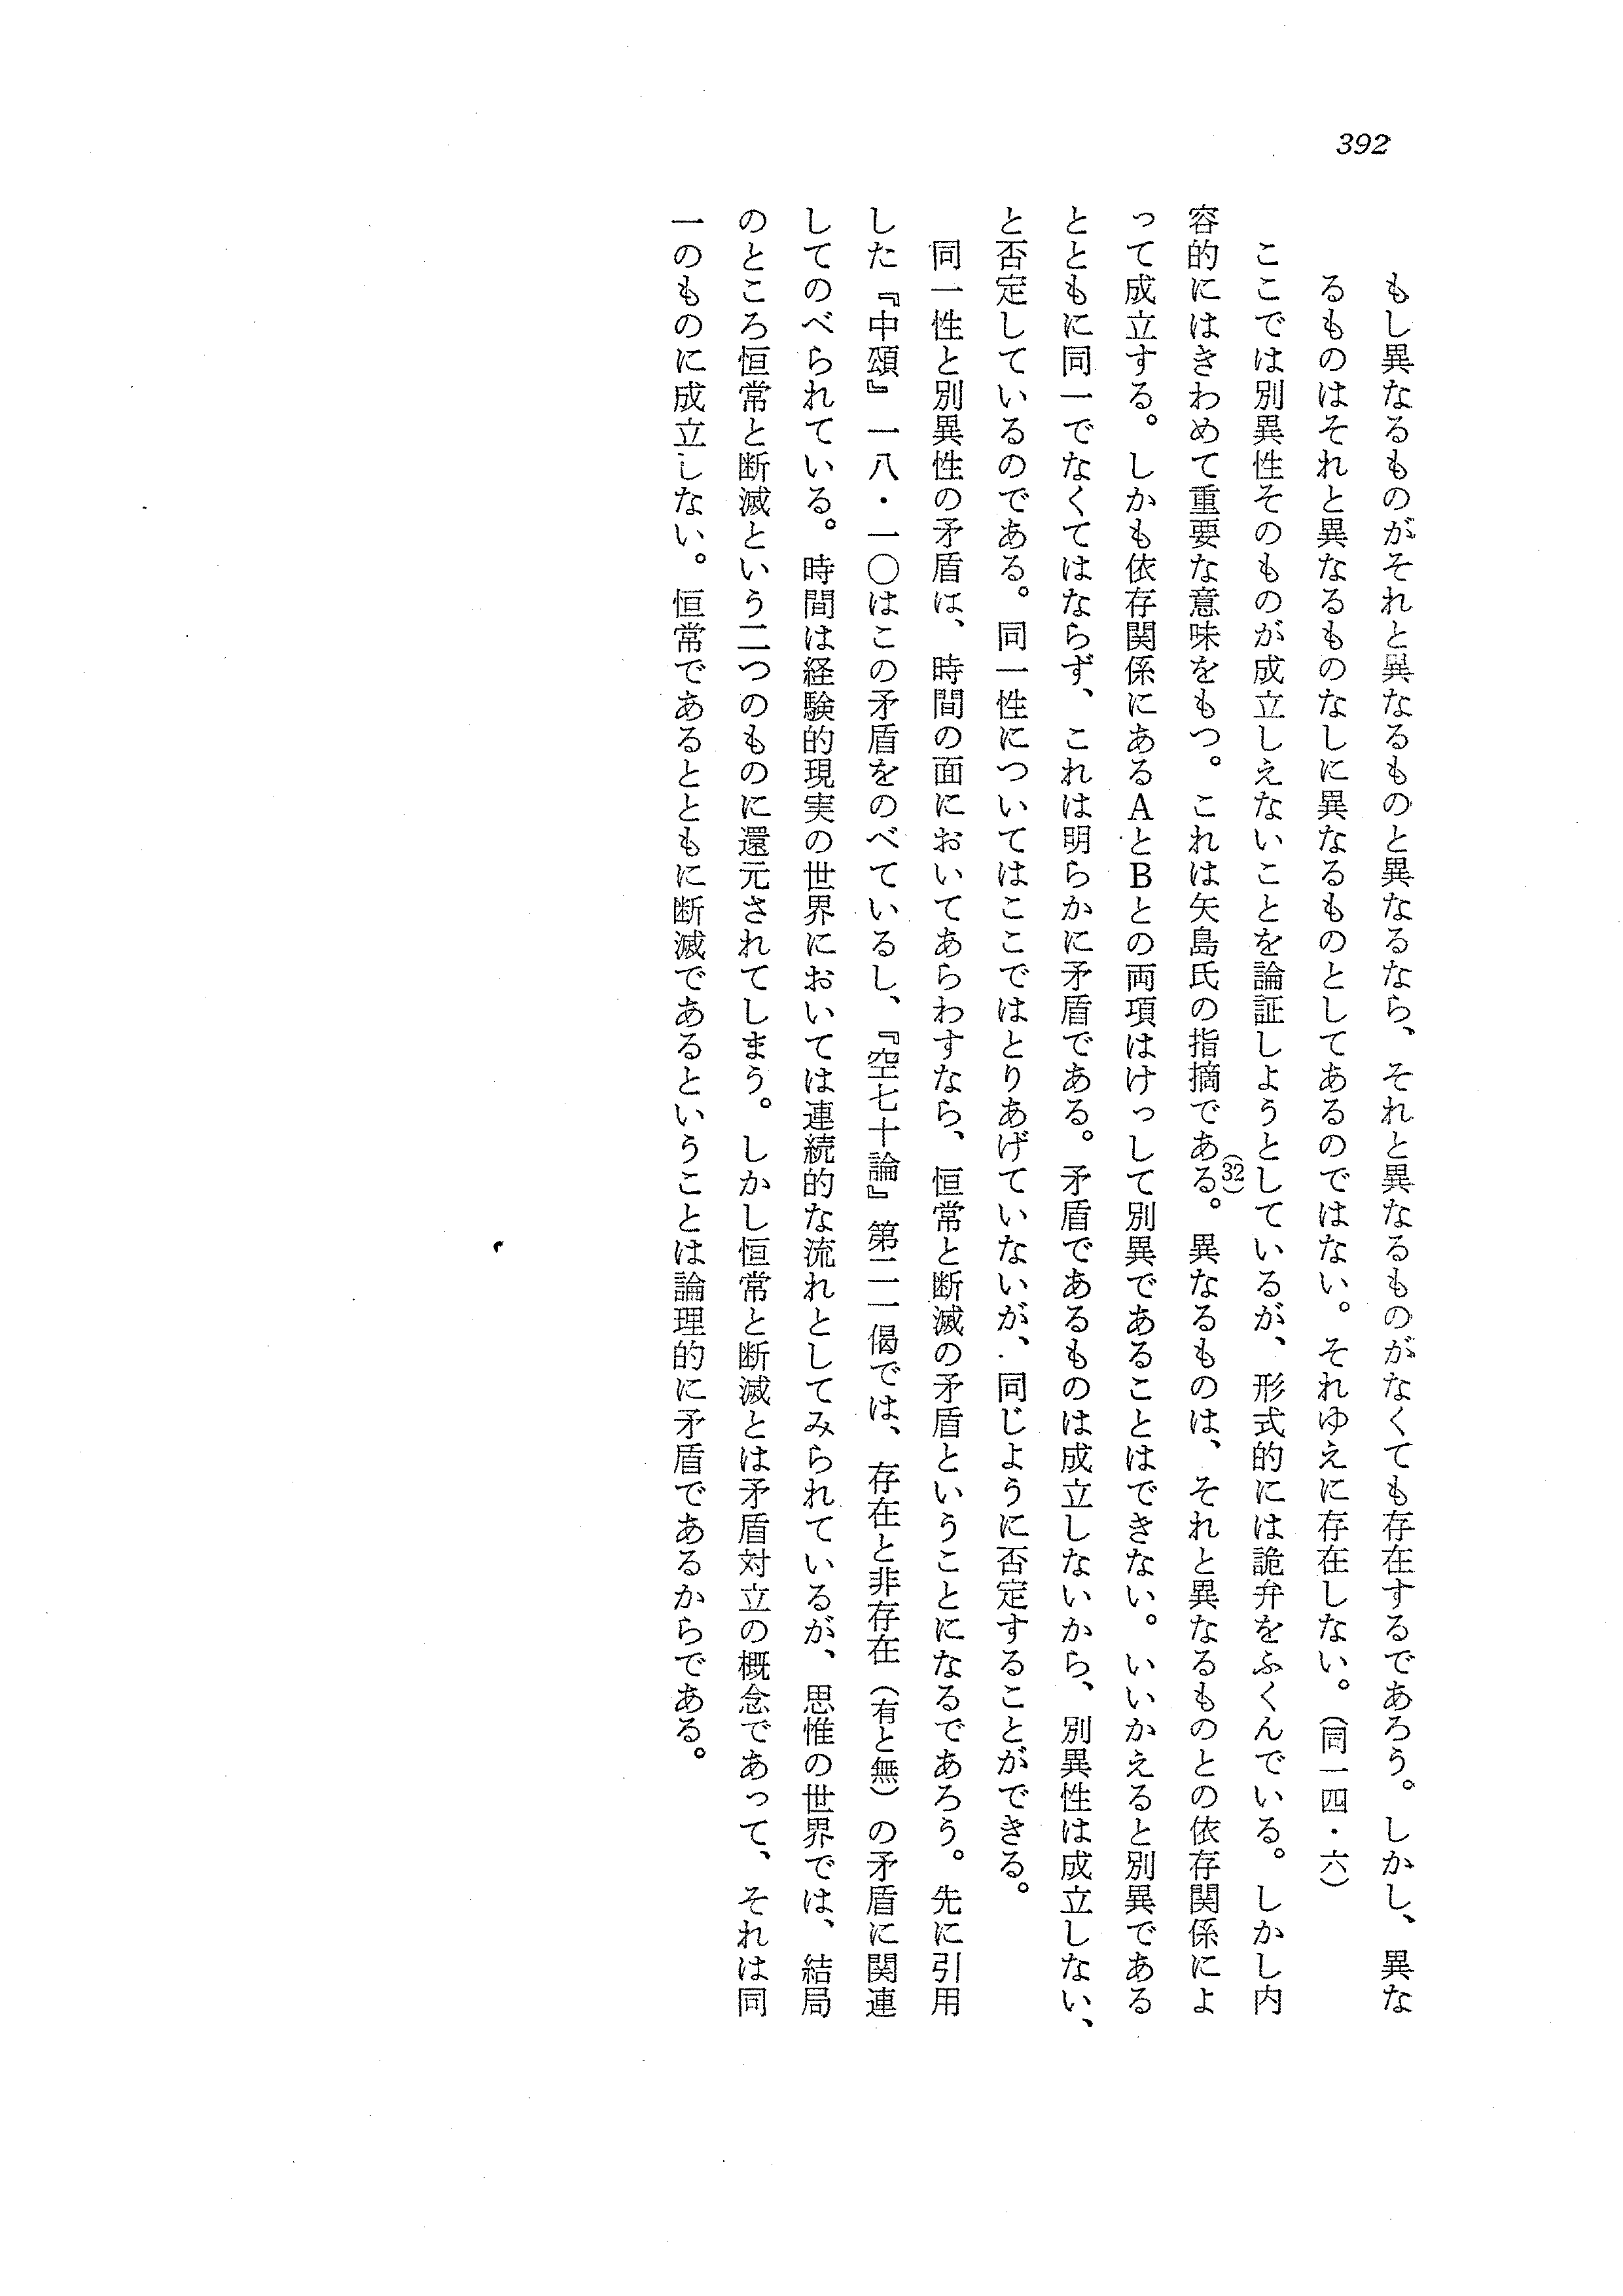 392
もし異なるものがそれと異なるものと異なるなら、それと異なるものがなくても存在するであろう。しかし、異な
るものはそれと異なるものなしに異なるものとしてあるのではない。それゆえに存在しない。(同一四・六)
ここでは別異性そのものが成立しえないことを論証しようとしているが、形式的には詭弁をふくんでいる。しかし内
容的にはきわめて重要な意味をもつ。これは矢島氏の指摘である(32)。異なるものは、それと異なるものとの依存関係によ
って成立する。しかも依存関係にあるAとBとの両項はけっして別異であることはできない。いいかえると別異である
とともに同一でなくてはならず、これは明らかに矛盾である。矛盾であるものは成立しないから、別異性は成立しない、
と否定しているのである。同一性についてはここではとりあげていないが、同じように否定することができる。
同一性と別異性の矛盾は、時間の面においてあらわすなら、恒常と断滅の矛盾ということになるであろう。先に引用
した『中頌』一八・一〇はこの矛盾をのべているし、『空七十論』第二一偈では、存在と非存在(有と無)の矛盾に関連
してのべられている。時間は経験的現実の世界においては連続的な流れとしてみられているが、思惟の世界では、結局
のところ恒常と断滅という二つのものに還元されてしまう。しかし恒常と断滅とは矛盾対立の概念であって、それは同
一のものに成立しない。恒常であるとともに断滅であるということは論理的に矛盾であるからである。